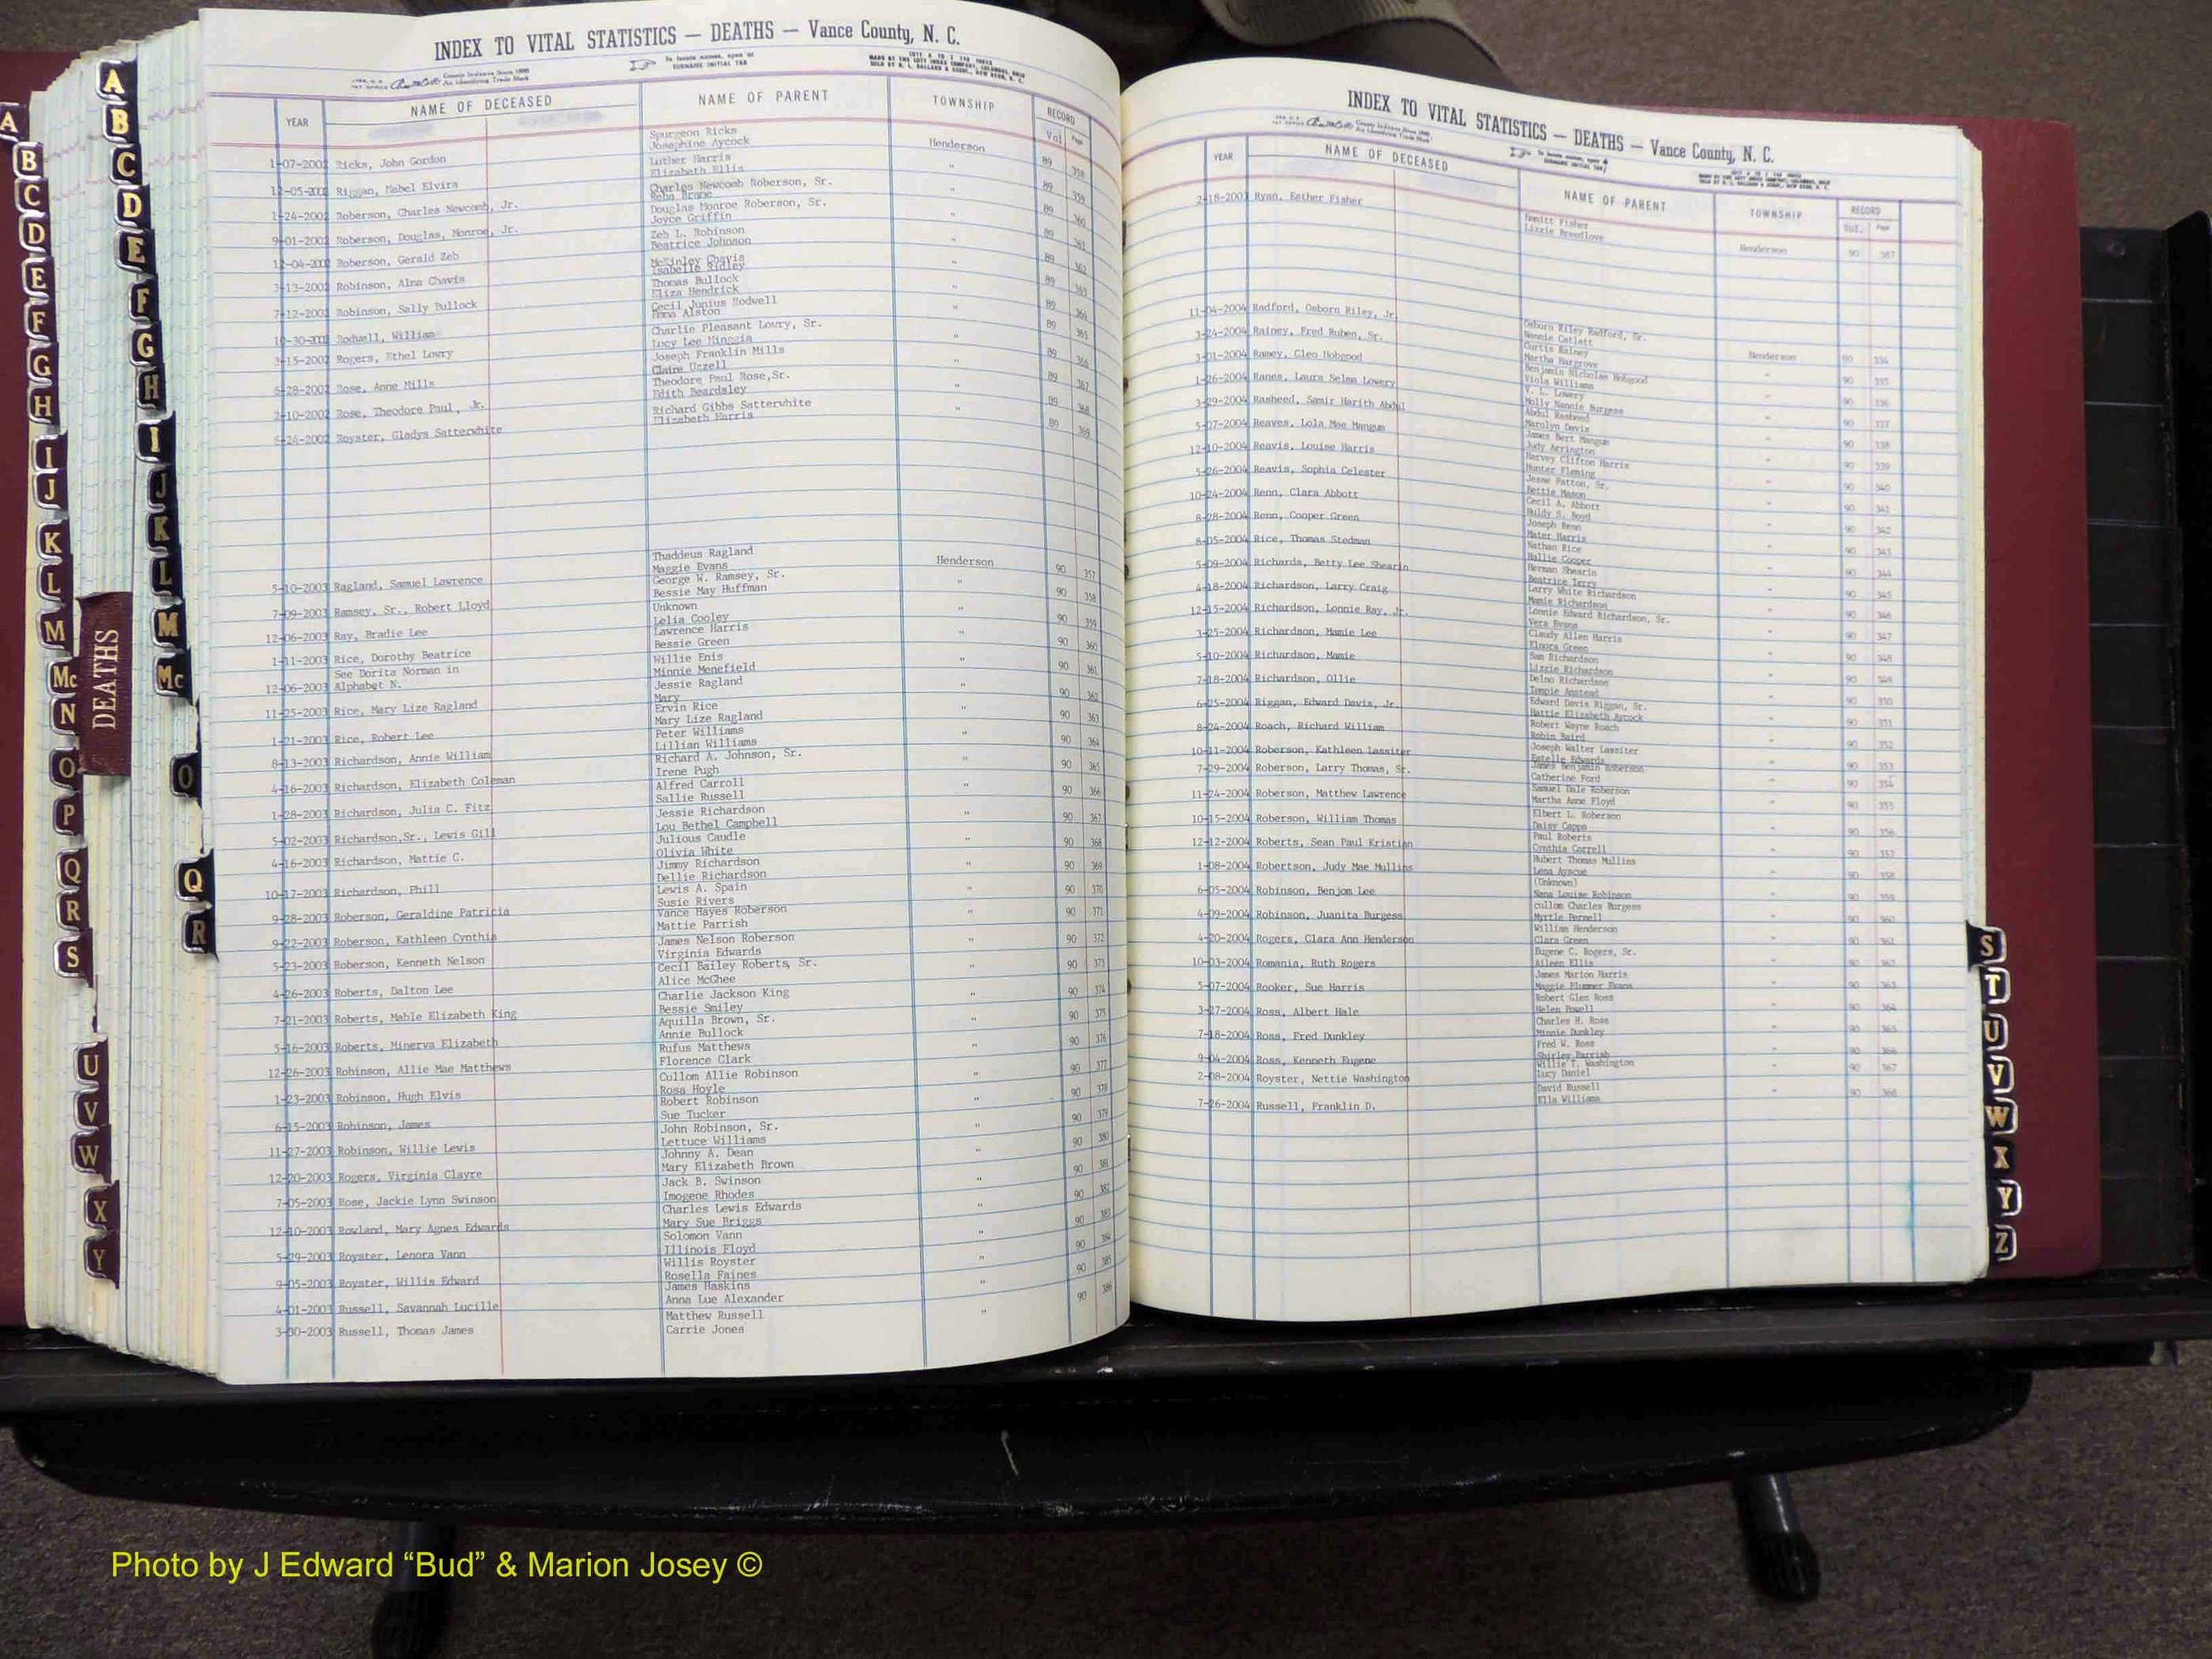 INDEX TO VITAL STATISTICS — DEATHS — Vance County, N. C.
County Indexes Since 1888
An Identifying Trade Mark
To locate names, open at
SURNAME INITIAL TAB
YEAR NAME OF DECEASED NAME OF PARENT TOWNSHIP RECORD
Vol. Page
Spurgeon Ricks
1-07-2002 Ricks, John Gordon Josephine Aycock Henderson 89 358
Luther Harris
12-05-2002 Riggan, Mabel Elvira Elizabeth Ellis " 89 359
Charles Newcomb Roberson, Sr.
1-24-2002 Roberson, Charles Newcomb, Jr. Reba Brone " 89 360
Douglas Monroe Roberson, Sr.
9-01-2002 Roberson, Douglas, Monroe, Jr. Joyce Griffin " 89 361
Zeb L. Robinson
12-04-2002 Roberson, Gerald Zeb Beatrice Johnson " 89 362
McKinley Chavis
3-13-2002 Robinson, Alma Chavis Isabelle Ridley " 89 363
Thomas Bullock
7-12-2002 Robinson, Sally Bullock Eliza Hendrick " 89 364
Cecil Junius Rodwell
10-30-2002 Rodwell, William Emma Alston " 89 365
Charlie Pleasant Lowry, Sr.
3-15-2002 Rogers, Ethel Lowry Lucy Lee " 89 366
Joseph Franklin Mills
6-28-2002 Rose, Anne Mills Claire Uzzell " 89 367
Theodore Paul Rose,Sr.
2-10-2002 Rose, Theodore Paul, Jr. Edith Beardsley " 89 368
Richard Gibbs Satterwhite
6-24-2002 Royster, Gladys Satterwhite Elizabeth Harris " 89 369
Thaddeus Ragland
5-10-2003 Ragland, Samuel Lawrence Maggie Evans Henderson 90 357
George W. Ramsey, Sr.
7-09-2003 Ramsey, Sr., Robert Lloyd Bessie May Huffman " 90 358
Unknown
12-06-2003 Ray, Bradie Lee Lelia Cooley " 90 359
Lawrence Harris
1-11-2003 Rice, Dorothy Beatrice Bessie Green " 90 360
See Dorita Norman in Willie Enis
12-06-2003 Alphabet N. Minnie Menefield " 90 361
Jessie Ragland
11-25-2003 Rice, Mary Lize Ragland Mary " 90 362
Ervin Rice
1-21-2003 Rice, Robert Lee Mary Lize Ragland " 90 363
Peter Williams
8-13-2003 Richardson, Annie William Lillian Williams " 90 364
Richard A. Johnson, Sr.
4-16-2003 Richardson, Elizabeth Coleman Irene Pugh " 90 365
Alfred Carroll
1-28-2003 Richardson, Julia C. Fitz Sallie Russell " 90 366
Jessie Richardson
5-02-2003 Richardson,Sr., Lewis Gill Lou Bethel Campbell " 90 367
Julious Caudle
4-16-2003 Richardson, Mattie C. Olivia White " 90 368
Jimmy Richardson
10-17-2003 Richardson, Phill Dellie Richardson " 90 369
Lewis A. Spain
9-28-2003 Roberson, Geraldine Patricia Susie Rivers " 90 370
Vance Hayes Roberson
9-22-2003 Roberson, Kathleen Cynthia Mattie Parrish " 90 371
James Nelson Roberson
5-23-2003 Roberson, Kenneth Nelson Virginia Edwards " 90 372
Cecil Bailey Roberts, Sr.
4-26-2003 Roberts, Dalton Lee Alice McGhee " 90 373
Charlie Jackson King
7-21-2003 Roberts, Mable Elizabeth King Bessie Smiley " 90 374
Aquilla Brown, Sr.
5-16-2003 Roberts, Minerva Elizabeth Annie Bullock " 90 375
Rufus Matthews
12-26-2003 Robinson, Allie Mae Matthews Florence Clark " 90 376
Cullom Allie Robinson
1-23-2003 Robinson, Hugh Elvis Rosa Hoyle " 90 377
Robert Robinson
6-15-2003 Robinson, James Sue Tucker " 90 378
John Robinson, Sr.
11-27-2003 Robinson, Willie Lewis Lettuce Williams " 90 379
Johnny A. Dean
12-20-2003 Rogers, Virginia Clayre Mary Elizabeth Brown " 90 380
Jack B. Swinson
7-05-2003 Rose, Jackie Lynn Swinson Imogene Rhodes " 90 381
Charles Lewis Edwards
12-10-2003 Rowland, Mary Agnes Edwards Mary Sue Briggs " 90 382
Solomon Vann
5-29-2003 Royster, Lenora Vann Illinois Floyd " 90 383
Willis Royster
9-05-2003 Royster, Willis Edward Rosella Faines " 90 384
James Haskins
4-01-2003 Russell, Savannah Lucille Anna Lue Alexander " 90 385
Matthew Russell
3-30-2003 Russell, Thomas James Carrie Jones " 90 386
INDEX TO VITAL STATISTICS — DEATHS — Vance County, N. C.
YEAR NAME OF DECEASED NAME OF PARENT TOWNSHIP RECORD
Vol. Page
2-18-2003 Ryan, Esther Fisher Fisher
Lizzie Breedlove Henderson 90 387
11-04-2004 Radford, Osborn Riley, Jr. Osborn Riley Radford, Sr.
Nannie Catlett Henderson 90 334
3-24-2004 Rainey, Fred Ruben, Sr. Curtis Rainey
Martha Hargrove " 90 335
3-01-2004 Ramey, Cleo Hobgood Benjamin Nicholas Hobgood
Viola Williams " 90 336
1-26-2004 Ranes, Laura Selma Lowery V. L. Lowery
Molly Nannie Burgess " 90 337
3-29-2004 Rasheed, Samir Harith Abdul Abdul Rasheed
Marolyn Davis " 90 338
5-07-2004 Reaves, Lola Mae Mangum James Bert Mangum
Judy Arrington " 90 339
12-10-2004 Reavis, Louise Harris Harvey Clifton Harris
Hunter Fleming " 90 340
5-26-2004 Reavis, Sophia Celester Jesse Patton, Sr.
Bettie Mason " 90 341
10-24-2004 Renn, Clara Abbott Cecil A. Abbott
Huldy S. Boyd " 90 342
8-28-2004 Renn, Cooper Green Joseph Renn
Mater Harris " 90 343
8-05-2004 Rice, Thomas Stedman Nathan Rice
Hallie Cooper " 90 344
5-09-2004 Richards, Betty Lee Shearin Herman Shearin
Beatrice Terry " 90 345
4-18-2004 Richardson, Larry Craig Larry White Richardson
Mamie Richardson " 90 346
12-15-2004 Richardson, Lonnie Ray, Jr. Lonnie Edward Richardson, Sr.
Vera Evans " 90 347
3-25-2004 Richardson, Mamie Lee Claudy Allen Harris
Elnora Green " 90 348
5-10-2004 Richardson, Mamie Sam Richardson
Lizzie Richardson " 90 349
7-18-2004 Richardson, Ollie Delno Richardson
Tempie Anstead " 90 350
6-25-2004 Riggan, Edward Davis, Jr. Edward Davis Riggan, Sr.
Hattie Elizabeth Aycock " 90 351
8-24-2004 Roach, Richard William Robert Wayne Roach
Robin Baird " 90 352
10-11-2004 Roberson, Kathleen Lassiter Joseph Walter Lassiter
Estelle Edwards " 90 353
7-29-2004 Roberson, Larry Thomas, Sr. James Benjamin Roberson
Catherine Ford " 90 354
11-24-2004 Roberson, Matthew Lawrence Samuel Dale Roberson
Martha Anne Floyd " 90 355
10-15-2004 Roberson, William Thomas Elbert L. Roberson
Daisy Capps " 90 356
12-12-2004 Roberts, Sean Paul Kristian Paul Roberts
Cynthia Correll " 90 357
1-08-2004 Robertson, Judy Mae Mullins Hubert Thomas Mullins
Lena Ayscue " 90 358
6-05-2004 Robinson, Benjom Lee (Unknown)
Nana Louise Robinson " 90 359
4-09-2004 Robinson, Juanita Burgess cullom Charles Burgess
Myrtle Pernell " 90 360
4-20-2004 Rogers, Clara Ann Henderson William Henderson
Clara Green " 90 361
10-03-2004 Romania, Ruth Rogers Eugene C. Rogers, Sr.
Aileen Ellis " 90 362
5-07-2004 Rooker, Sue Harris James Marion Harris
Maggie Plummer Evans " 90 363
3-27-2004 Ross, Albert Hale Robert Glen Ross
Helen Powell " 90 364
7-18-2004 Ross, Fred Dunkley Charles H. Ross
Minnie Dunkley " 90 365
9-04-2004 Ross, Kenneth Eugene Fred W. Ross
Shirley Parrish " 90 366
2-08-2004 Royster, Nettie Washington Willie T. Washington
Lucy Daniel " 90 367
7-26-2004 Russell, Franklin D. David Russell
Ella Williams " 90 368
A
B
C
D
E
F
G
H
I
J
K
L
M
Mc
N
O
P
Q
R
S
U
V
W
X
Y
DEATHS
A
B
C
D
E
F
G
H
I
J
K
L
M
Mc
O
Q
R
S
T
U
V
W
X
Y
Z
Photo by J Edward “Bud” & Marion Josey ©